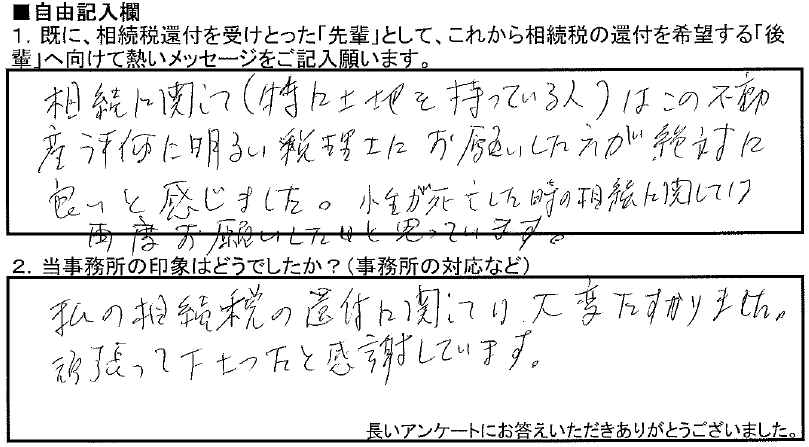 ■自由記入欄
1. 既に、相続税還付を受けとった「先輩」として、これから相続税の還付を希望する「後
輩」へ向けて熱いメッセージをご記入願います。
相続に関して(特に土地を持っている人)はこの不動
産評価に明るい税理士にお願いした方が絶対に
良いと感じました。小生が死亡した時の相続に関しては
再度お願いしたいと思っています。
2. 当事務所の印象はどうでしたか?(事務所の対応など)
私の相続税の還付に関しては大変たすかりました。
頑張って下さったと感謝しています。
長いアンケートにお答えいただきありがとうございました。